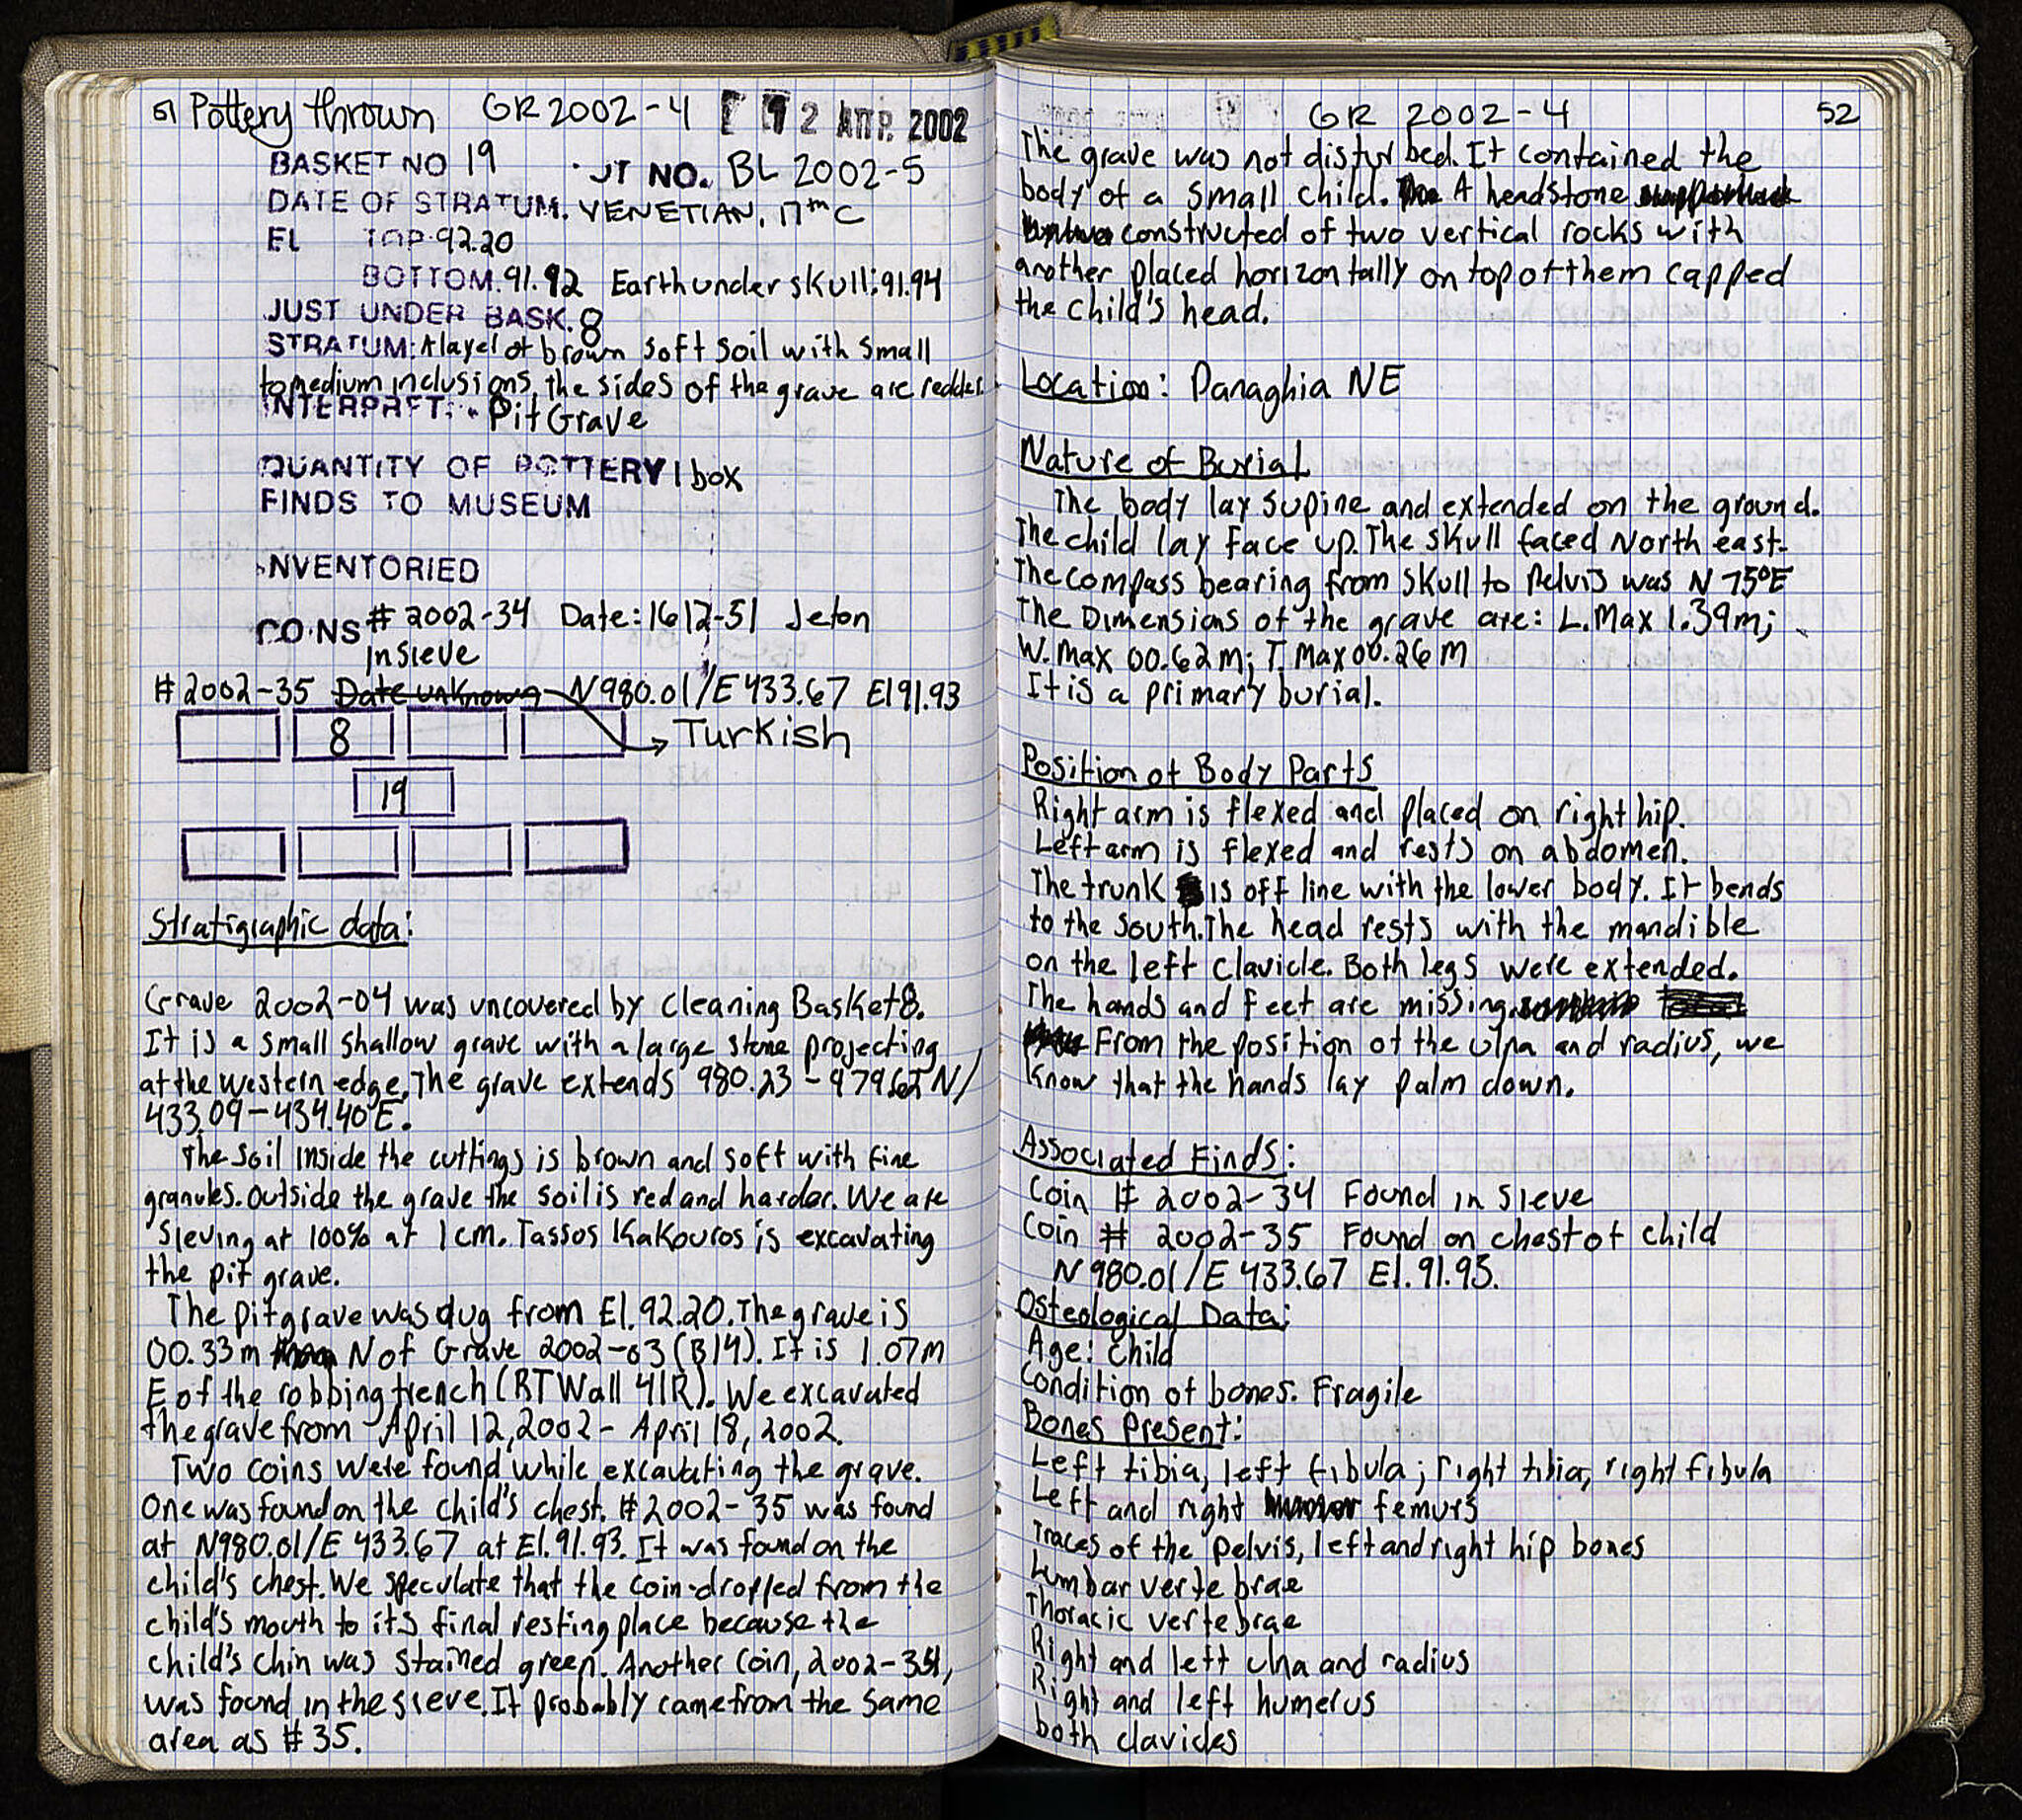 51 Pottery thrown GR 2002-4 12 ΑΠΡ. 2002
BASKET NO 19 UT NO. BL 2002-5
DATE OF STRATUM. VENETIAN, 17th C
EL TOP 92.20
BOTTOM. 91.92 Earth under skull: 91.94
JUST UNDER BASK. 8
STRATUM: A layer of brown soft soil with small
to medium inclusions, the sides of the grave are redder.
INTERPRET: Pit Grave
QUANTITY OF POTTERY 1 box
FINDS TO MUSEUM
INVENTORIED
COINS # 2002-34 Date: 1612-51 Jeton
in sieve
# 2002-35 Date unknown N980.01/E 433.67 El 91.93
8
→ Turkish
19
Stratigraphic data:
Grave 2002-04 was uncovered by cleaning Basket 8.
It is a small shallow grave with a large stone projecting
at the western edge. The grave extends 980.23 - N/
433.09-434.40 E.
The soil inside the cuttings is brown and soft with fine
granules. Outside the grave the soil is red and harder. We are
sieving at 100% at 1 cm. Tassos Kakouros is excavating
the pit grave.
The pit grave was dug from El. 92.20. The grave is
00.33 m N of Grave 2002-03 (B14). It is 1.07m
E of the robbing trench (RT Wall 41R). We excavated
the grave from April 12, 2002 - April 18, 2002.
Two coins were found while excavating the grave.
One was found on the child's chest. # 2002-35 was found
at N980.01/E 433.67 at El. 91.93. It was found on the
child's chest. We speculate that the coin dropped from the
child's mouth to it's final resting place because the
child's chin was stained green. Another coin, 2002-34,
was found in the sieve. It probably came from the same
area as # 35.
GR 2002-4 52
The grave was not disturbed. It contained the
body of a small child. A headstone
constructed of two vertical rocks with
another placed horizontally on top of them capped
the child's head.
Location: Panaghia NE
Nature of Burial
The body lay supine and extended on the ground.
The child lay face up. The skull faced North east.
The compass bearing from skull to pelvis was N 75°E
The Dimensions of the grave are: L. Max 1.39m;
W. max 00.62 m; T. Max 00.26 m
It is a primary burial.
Position of Body Parts
Right arm is flexed and placed on right hip.
Left arm is flexed and rests on abdomen.
The trunk is off line with the lower body. It bends
to the south. The head rests with the mandible
on the left clavicle. Both legs were extended.
The hands and feet are missing
From the position of the ulna and radius, we
know that the hands lay palm down.
Associated Finds:
Coin # 2002-34 Found in sieve
Coin # 2002-35 Found on chest of child
N 980.01/E 433.67 El. 91.93.
Osteological Data:
Age: Child
Condition of bones: Fragile
Bones Present:
Left tibia, left fibula; right tibia, right fibula
Left and right femurs
Traces of the pelvis, left and right hip bones
Lumbar vertebrae
Thoracic vertebrae
Right and left ulna and radius
Right and left humerus
both clavicles